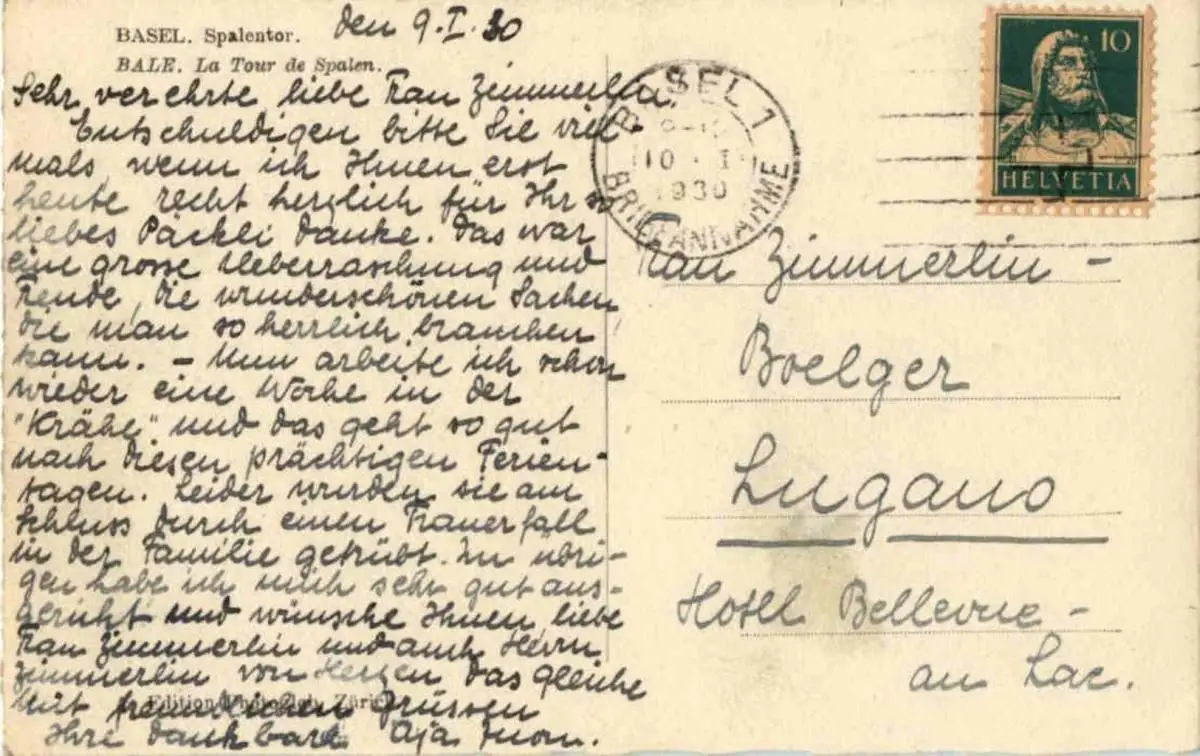 BASEL. Spalentor.
BALE. La Tour de Spalen.
den 9.I.30
Sehr verehrte liebe Frau Zimmerlin,
Entschuldigen bitte Sie viel-
mals, wenn ich Ihnen erst
heute recht herzlich für Ihr so
liebes Päckli danke. Das war
eine grosse Ueberraschung und
Freude, die wunderschönen Sachen
die man so herrlich brauchen
kann. – Nun arbeite ich schon
wieder eine Woche in der
"Krähe" und das geht so gut
nach diesen prächtigen Ferien-
tagen. Leider wurden sie am
Schluss durch einen Trauerfall
in der Familie getrübt. Im übri-
gen habe ich mich sehr gut aus-
geruht und wünsche Ihnen liebe
Frau Zimmerlin und auch Herrn
Zimmerlin von Herzen das gleiche
Mit freundlichen Grüssen
Ihre dankbare Aja
Edition Zürich
BASEL 1
10. I
1930
BRIEFANNAHME
10
HELVETIA
Frau Zimmerlin -
Boelger
Lugano
Hotel Bellevue -
au Lac.